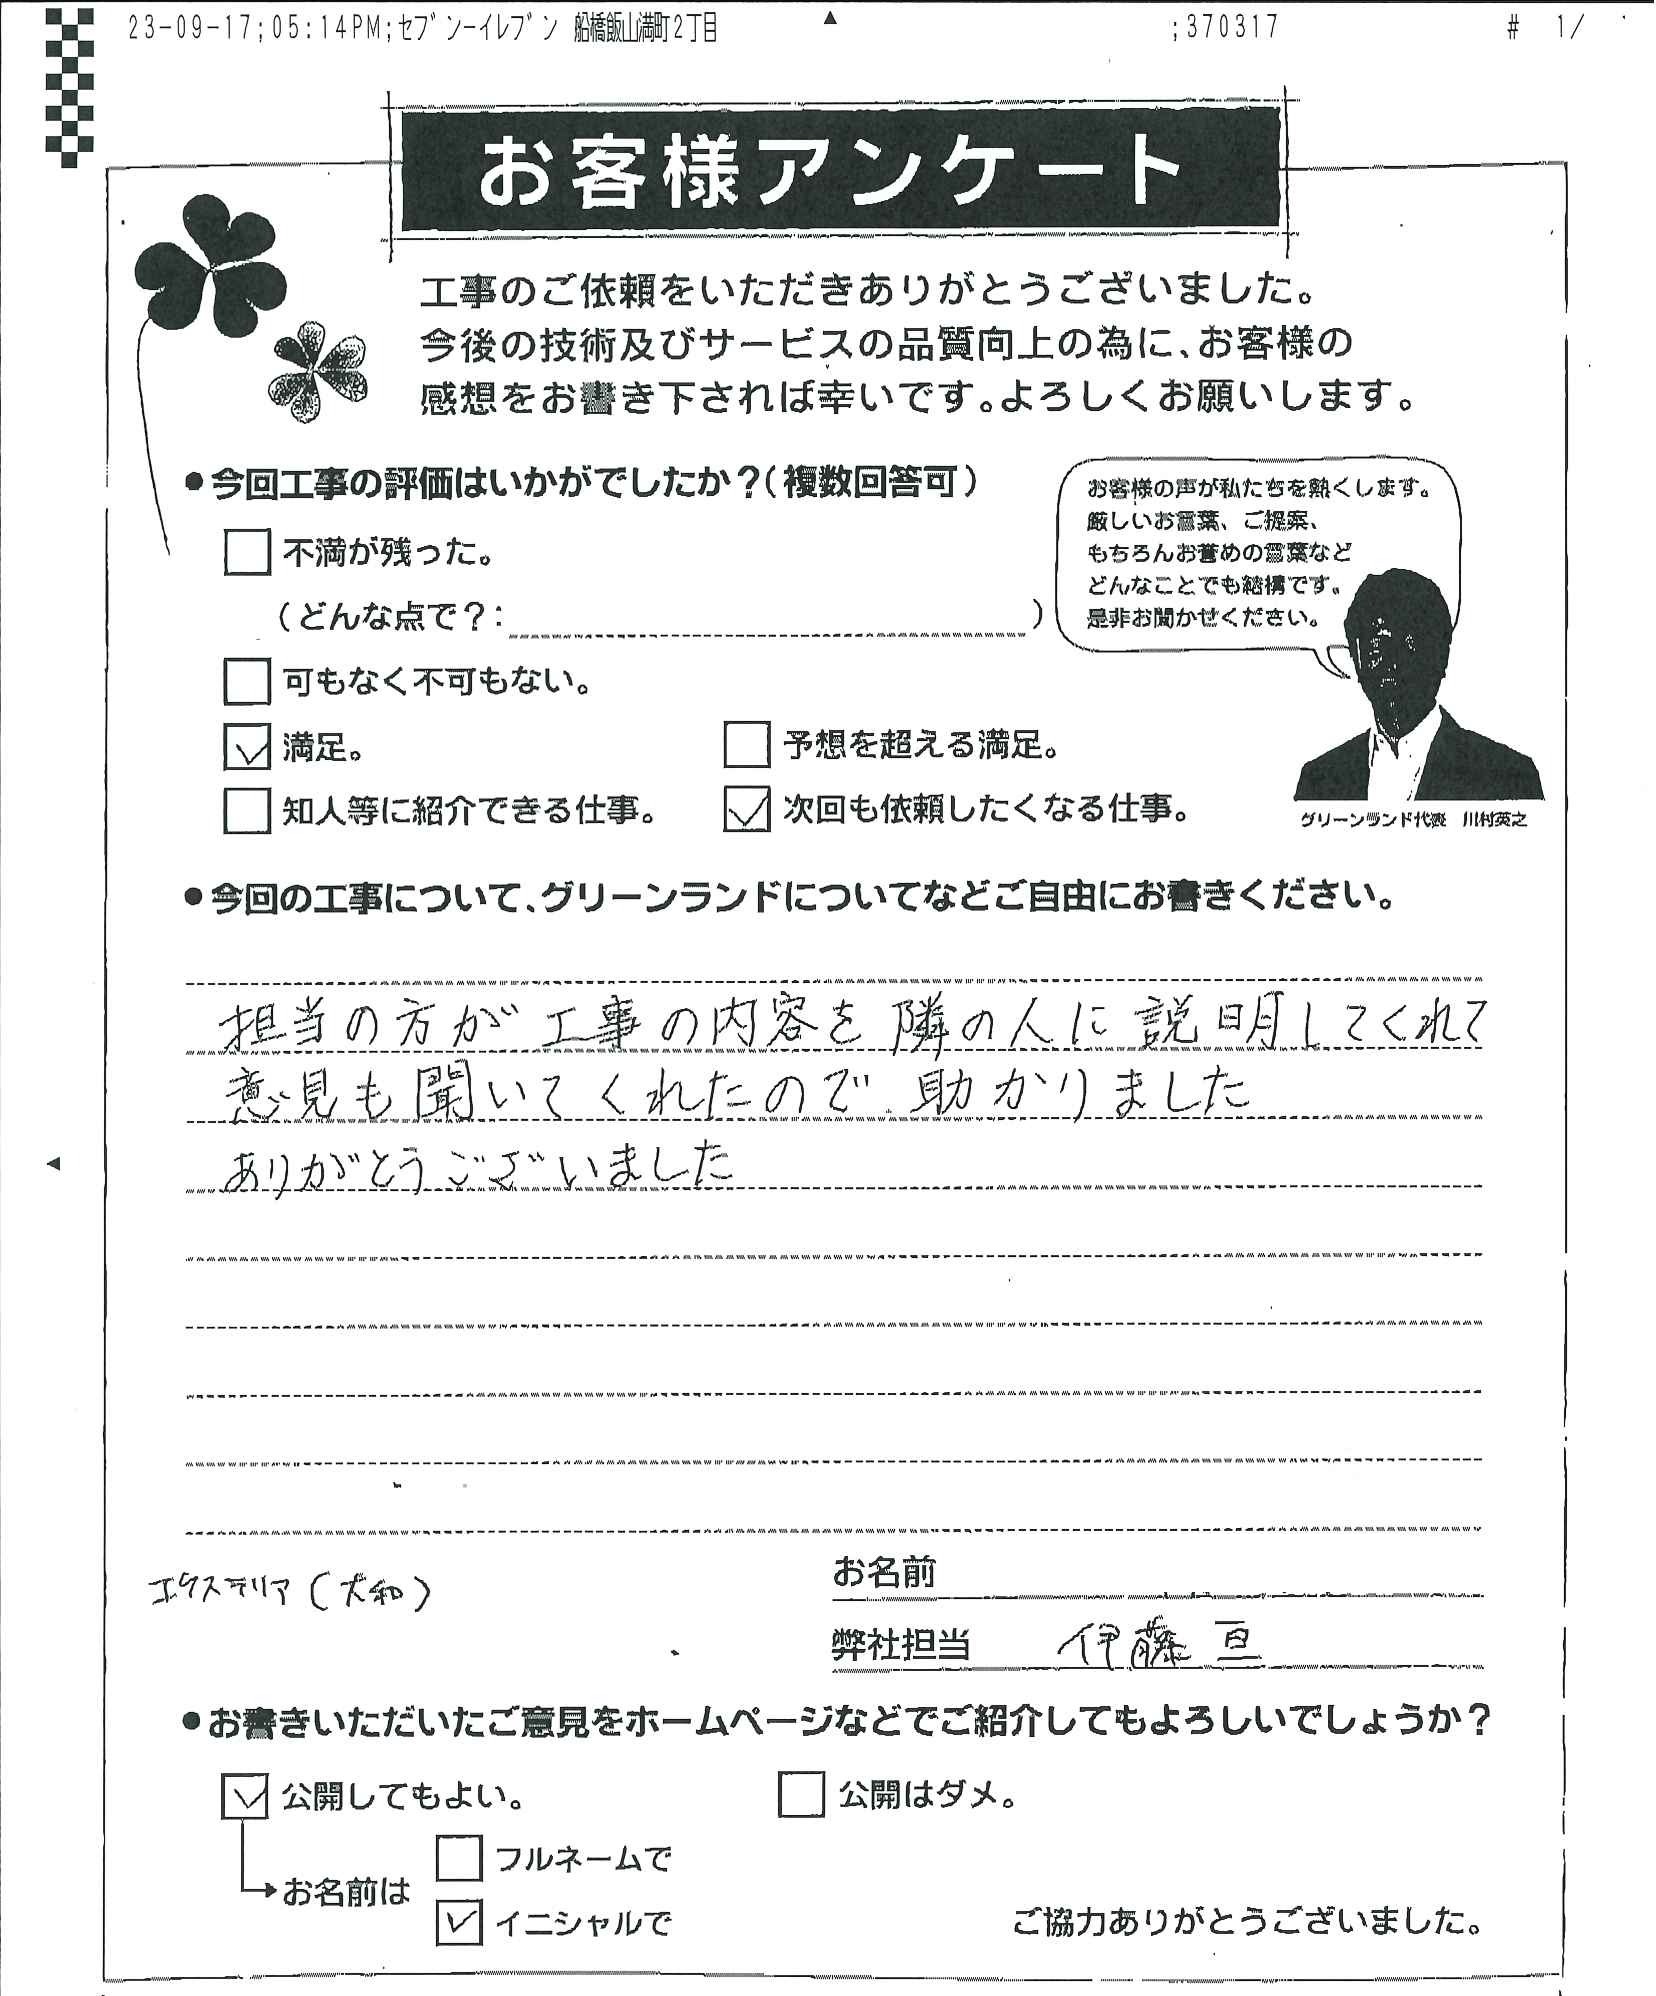 23-09-17;05:14PM;セブン-イレブン 船橋飯山満町2丁目 ;370317 # 1/
お客様アンケート
工事のご依頼をいただきありがとうございました。
今後の技術及びサービスの品質向上の為に、お客様の
感想をお書き下されば幸いです。よろしくお願いします。
●今回工事の評価はいかがでしたか？（複数回答可）
お客様の声が私たちを熱くします。
厳しいお言葉、ご提案、
もちろんお誉めの言葉など
どんなことでも結構です。
是非お聞かせください。
不満が残った。
（どんな点で？： ）
可もなく不可もない。
満足。 予想を超える満足。
知人等に紹介できる仕事。 次回も依頼したくなる仕事。
グリーンランド代表 川村英之
●今回の工事について、グリーンランドについてなどご自由にお書きください。
担当の方が工事の内容を隣の人に説明してくれて
意見も聞いてくれたので助かりました
ありがとうございました
エクステリア（大和）
お名前
弊社担当 伊藤 亘
●お書きいただいたご意見をホームページなどでご紹介してもよろしいでしょうか？
公開してもよい。 公開はダメ。
フルネームで
お名前は
イニシャルで
ご協力ありがとうございました。